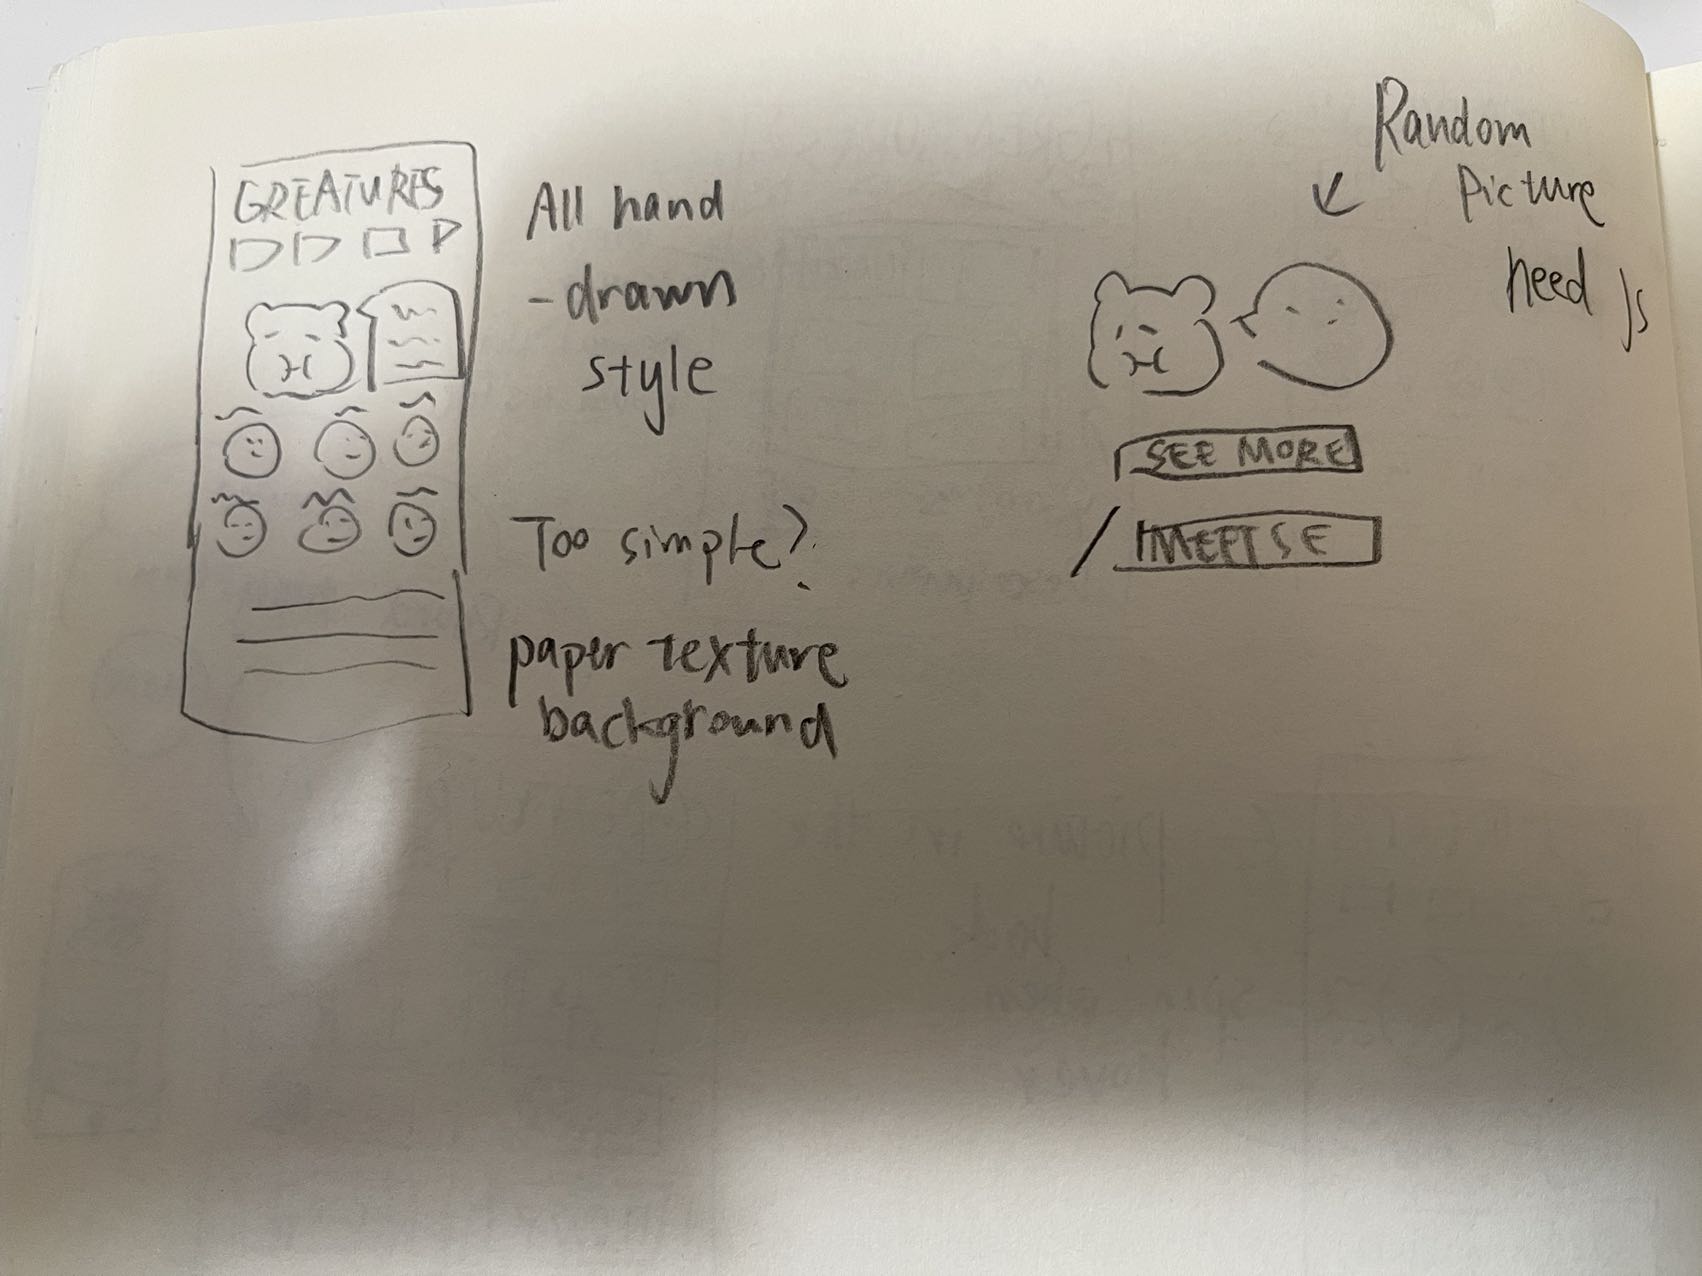 GREATURES
All hand
-drawn
style
Too simple?
paper texture
background
Random
Picture
need Js
SEE MORE